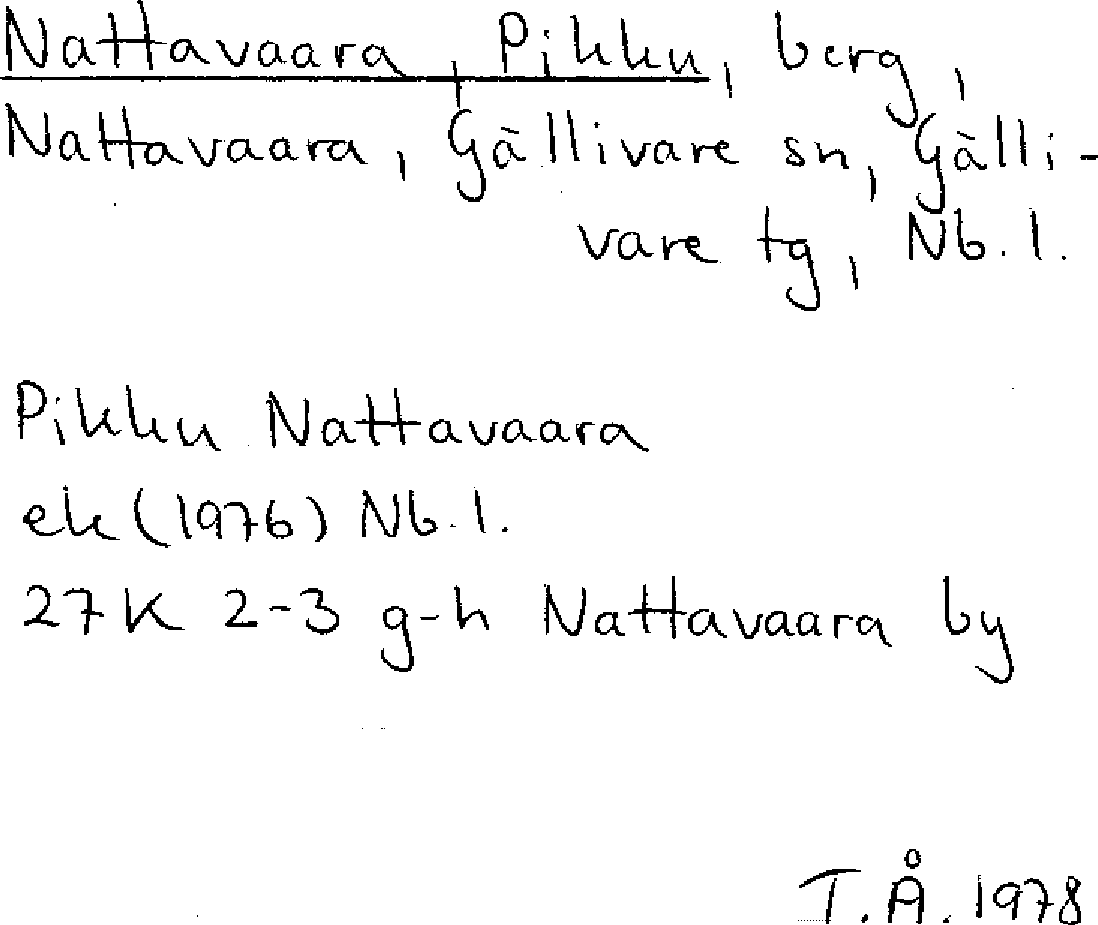 Nattavaara, Pikku, berg,
Nattavaara, Gällivare sn, Gälli-
vare tg, Nb. l.
Pikku Nattavaara
ek (1976) Nb. l.
27K 2-3 g-h Nattavaara by
T. Å. 1978